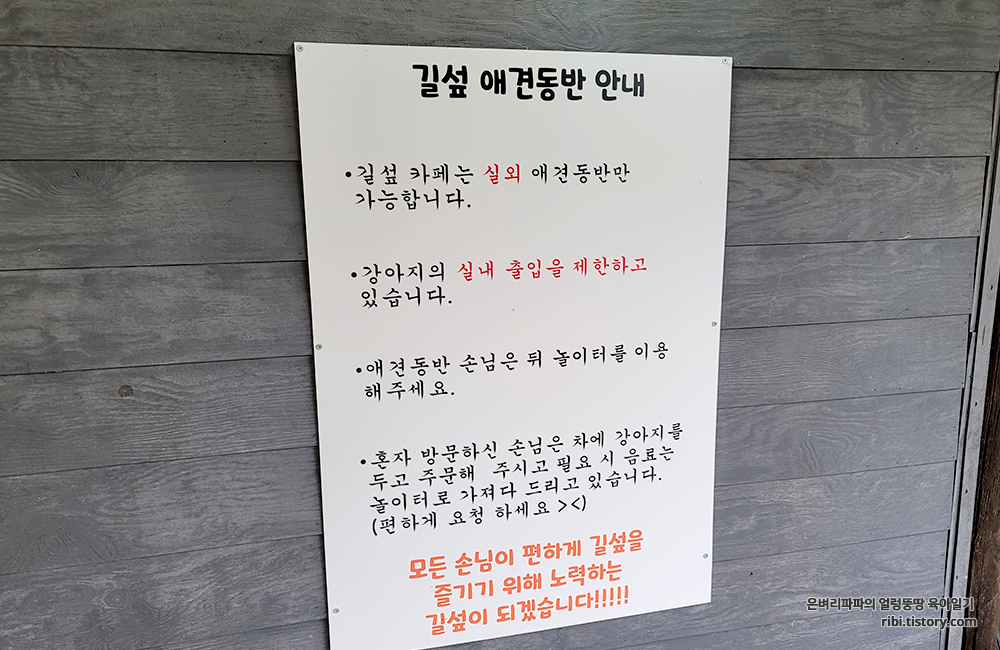 길섶 애견동반 안내
•길섶 카페는 실외 애견동반만
가능합니다.
•강아지의 실내 출입을 제한하고
있습니다.
•애견동반 손님은 뒤 놀이터를 이용
해주세요.
•혼자 방문하신 손님은 차에 강아지를
두고 주문해 주시고 필요 시 음료는
놀이터로 가져다 드리고 있습니다.
(편하게 요청 하세요 ><)
모든 손님이 편하게 길섶을
즐기기 위해 노력하는
길섶이 되겠습니다!!!!!
은벼리파파의 얼렁뚱땅 육아일기
ribi.tistory.com